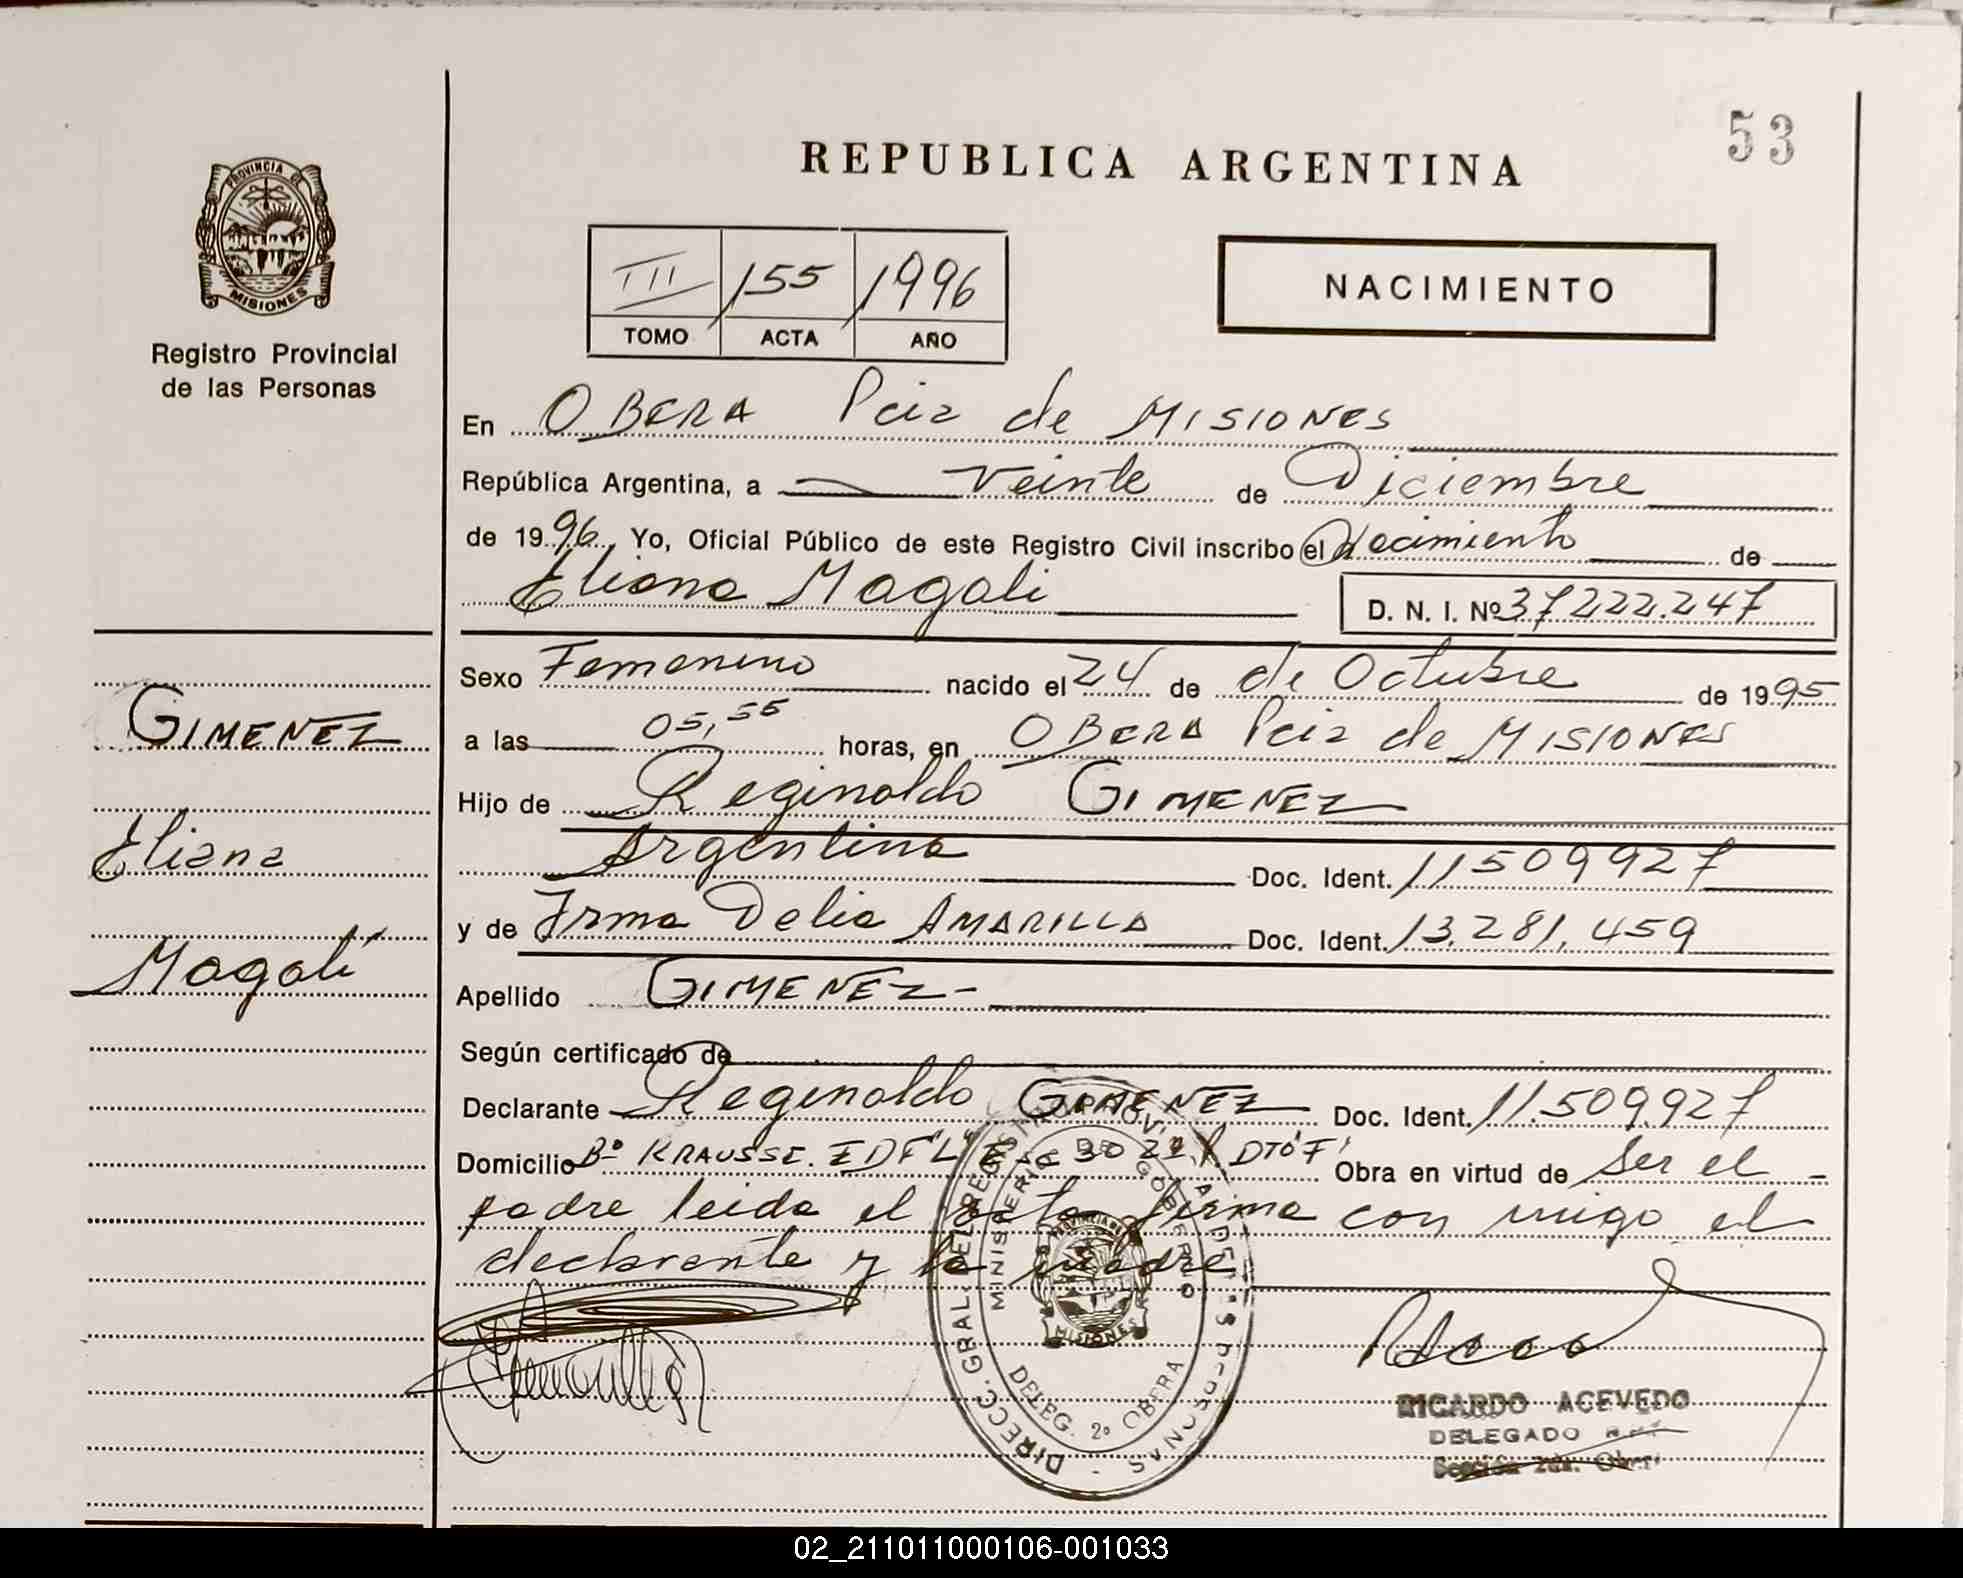 53
REPUBLICA ARGENTINA
PROVINCIA DE
MISIONES
Registro Provincial
de las Personas
III 155 1996
TOMO ACTA AÑO
NACIMIENTO
En OBERA Pcia de MISIONES
República Argentina, a veinte de Diciembre
de 1996. Yo, Oficial Público de este Registro Civil inscribo el Nacimiento de
Eliana Magali D. N. I. Nº 37.222.247
Sexo Femenino nacido el 24 de de Octubre de 1995
GIMENEZ
a las 05,55 horas, en OBERA Pcia de MISIONES
Hijo de Reginaldo GIMENEZ
Eliana
Argentina Doc. Ident. 11509927
y de Irma Delia AMARILLA Doc. Ident. 13.281.459
Magalí
Apellido GIMENEZ-
Según certificado de
Declarante Reginaldo GIMENEZ Doc. Ident. 11.509.927
Domicilio Bº KRAUSSE. EDF "L" DTO "F" Obra en virtud de ser el
padre leida el acta firma con migo el
declarante y la madre
MINISTERIO DE GOBIERNO
PROVINCIA DE
MISIONES
DELEG. 2º OBERA
RICARDO ACEVEDO
DELEGADO
Sección 2da. Oberá
02_211011000106-001033